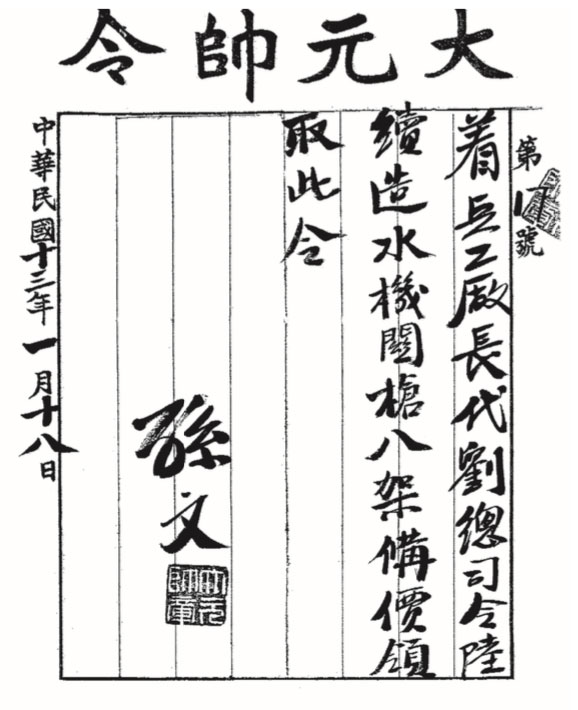 大元帥令
第17號
着兵工廠長代劉總司令陸
續造水機關槍八架備價領
取此令
孫文
大元帥章
中華民國十三年一月十八日